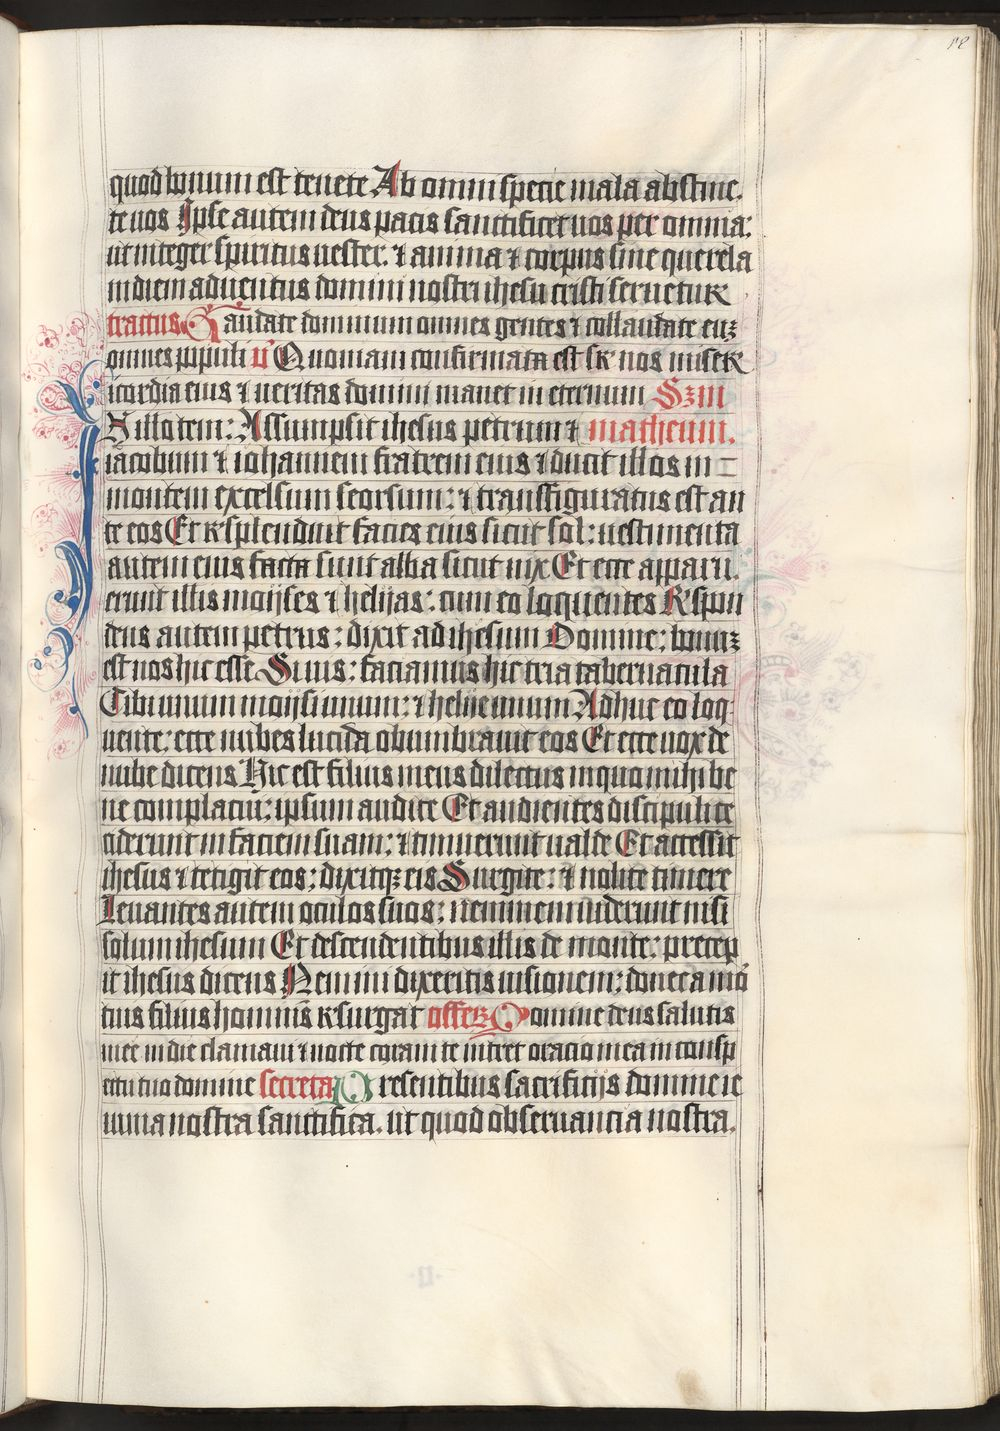 18
quod bonum est tenete Ab omni specie mala abstine.
te uos Ipse autem deus pacis sanctificet uos per omnia:
ut integer spiritus uester. ⁊ anima ⁊ corpus sine querela
in diem aduentus domini nostri ihesu cristi seruetur
tractus Laudate dominum omnes gentes ⁊ collaudate euʒ
omnes pipuli v̄ Quoniam confirmata est sr nos miser
icordia eius ⁊ ueritas domini manet in eternum Sʒm
In illo tem: Assumpsit ihesus petrum ⁊ matheum.
iacobum ⁊ iohannem fratrem eius ⁊ ducit illos in
montem excelsum seorsum: ⁊ transfiguratus est an
te eos Et resplenduit facies eius sicut sol: uestimenta
autem eius facta sunt alba sicut nix Et ecce apparu.
erunt illis moijses ⁊ helijas: cum eo loquentes Respon
dens autem petrus: dixit ad ihesum Domine: bonuʒ
est nos hic esse Siuis: faciamus hic tria tabernacula
Tibi unum moijsi unum: ⁊ helije unum Adhuc eo loq
uente: ecce nubes lucida obumbrauit eos Et ecce uox de
nube dicens Hic est filius meus dilectus in quo mihi be
ne complacui: ipsum audite Et audientes discipuli ce
ciderunt in faciem suam: ⁊ timuerunt ualde Et accessit
ihesus ⁊ tetigit eos: dixitqʒ eis Surgite: ⁊ nolite timere
Leuantes autem oculos suos: neminem uiderunt nisi
solum ihesum Et descendentibus illis de monte: precep
it ihesus dicens Nemini dixeritis uisionem: donec a mor
tuis filius hominis resurgat offerʒ Domine deus salutis
mee in die clamaui ⁊ nocte coram te intret oracio mea in consp
ectu tuo domine secreta Presentibus sacrificijs domine ie
iunia nostra sanctifica. ut quod obseruancia nostra.